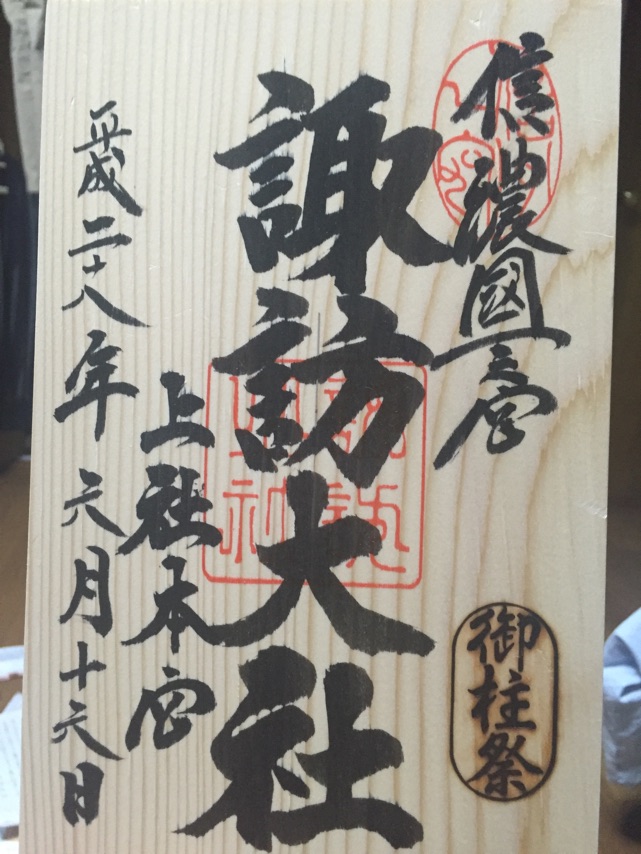 信濃國一之宮
御柱祭
諏訪大社
上社本宮
平成二十八年 六月十六日